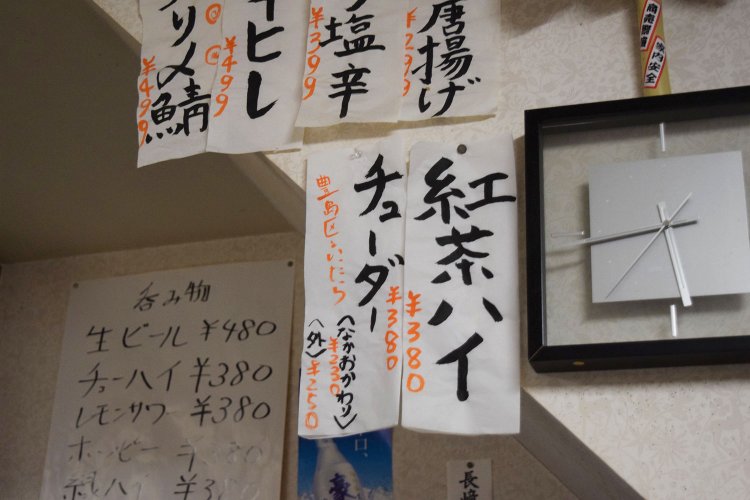 唐揚げ
¥299
塩辛
¥399
ヒレ
¥499
リ〆鯖
¥499
紅茶ハイ
¥380
チューダー
¥380
豊島区といたら
〈なかおかわり〉
¥230
〈外〉¥250
商売繁盛
家内安全
呑み物
生ビール ¥480
チューハイ ¥380
レモンサワ ¥380
ホッピー
ハイ
長崎